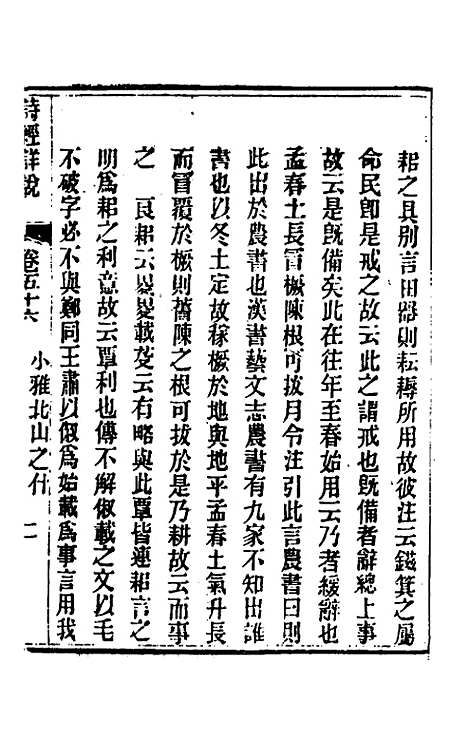 耜之具别言田器則耘耨所用故彼注云鎡箕之屬
命民卽是戒之故云此之謂戒也旣備者辭總上事
故云是旣備矣此在往年至春始用云乃者緩辭也
孟春土長冒橛陳根可拔月令注引此言農書曰則
此出於農書也漢書藝文志農書有九家不知出誰
書也以冬土定故稼橛於地與地平孟春土氣升長
而冒覆於橛則舊陳之根可拔於是乃耕故云而事
之 良耜云畟畟載芟云有略與此覃皆連耜言之
明爲耜之利意故云覃利也傳不解俶載之文以毛
不破字必不與鄭同王肅以俶爲始載爲事言用我
詩經詳說 卷五十六 小雅北山之什 二